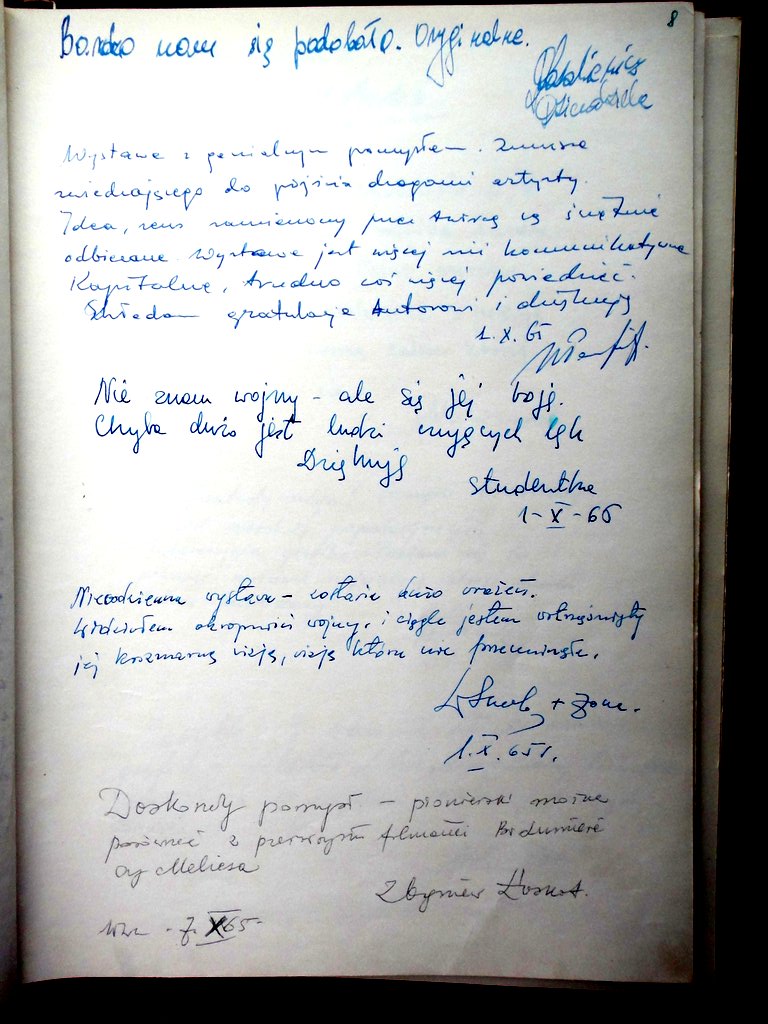 8
Bardzo nam się podobało. Oryginalne.
Wystawa z genialnym pomysłem. Zmusza
zwiedzającego do pójścia drogami artysty.
Idea, sens zamierzony przez twórcę są świetnie
odbierane. Wystawa jest więcej niż komunikatywna
Kapitalne, trudno coś więcej powiedzieć.
Składam gratulacje Autorowi i dziękuję
1.X.65
Nie znam wojny – ale się jej boję.
Chyba dużo jest ludzi czujących lęk
Dziękuję
studentka
1-X-65
Niecodzienna wystawa – zostawia dużo wrażeń.
Widziałem okropności wojny, i ciągle jestem wstrząśnięty
jej koszmarną wizją, wizją która nie przeminęła.
+ żona.
1.X.65r.
Doskonały pomysł – pionierski można
porównać z pierwszymi filmami Br Lumière
czy Meliesa
Zbigniew
7.X65